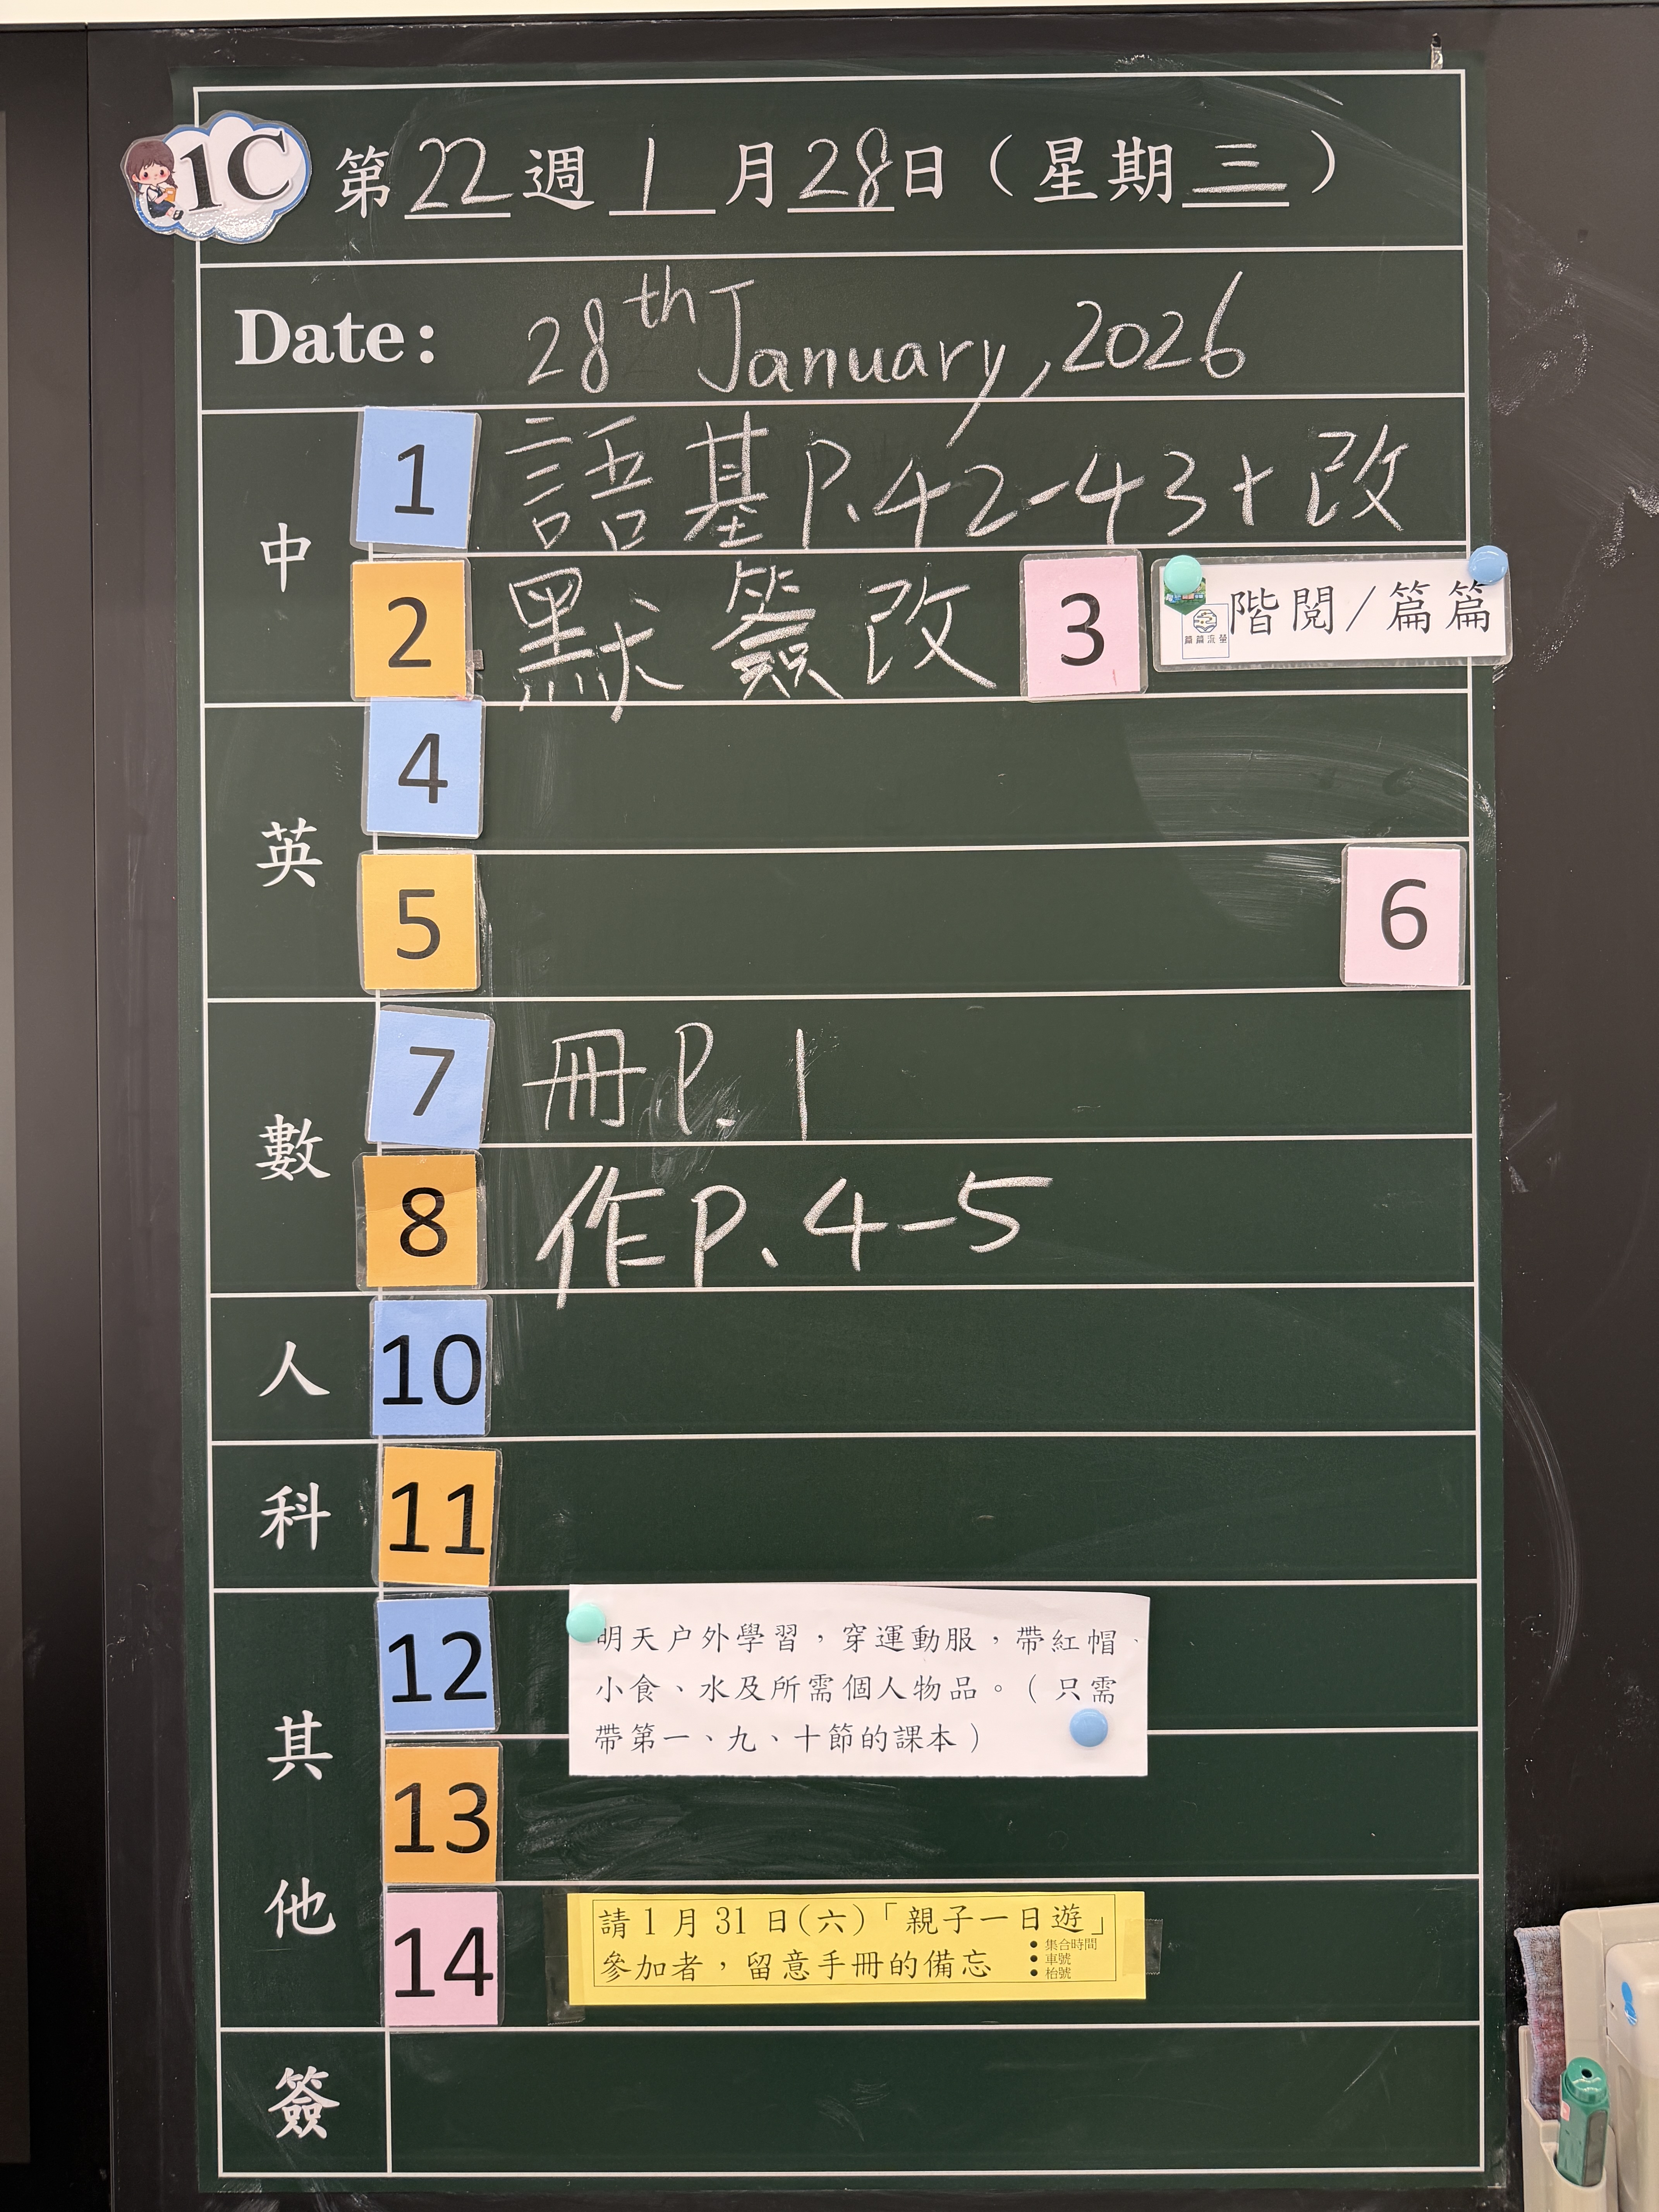 1C 第22週1月28日（星期三）
Date: 28th January, 2026
中
1 語基P.42-43+改
2 默簽改 3 階閱/篇篇
篇篇流螢
英
4
5 6
數
7 冊P.1
8 作P.4-5
人 10
科 11
其他
12 明天户外學習，穿運動服，帶紅帽、
小食、水及所需個人物品。（只需
帶第一、九、十節的課本）
13
14 請1月31日(六)「親子一日遊」
參加者，留意手冊的備忘
• 集合時間
• 車號
• 枱號
簽